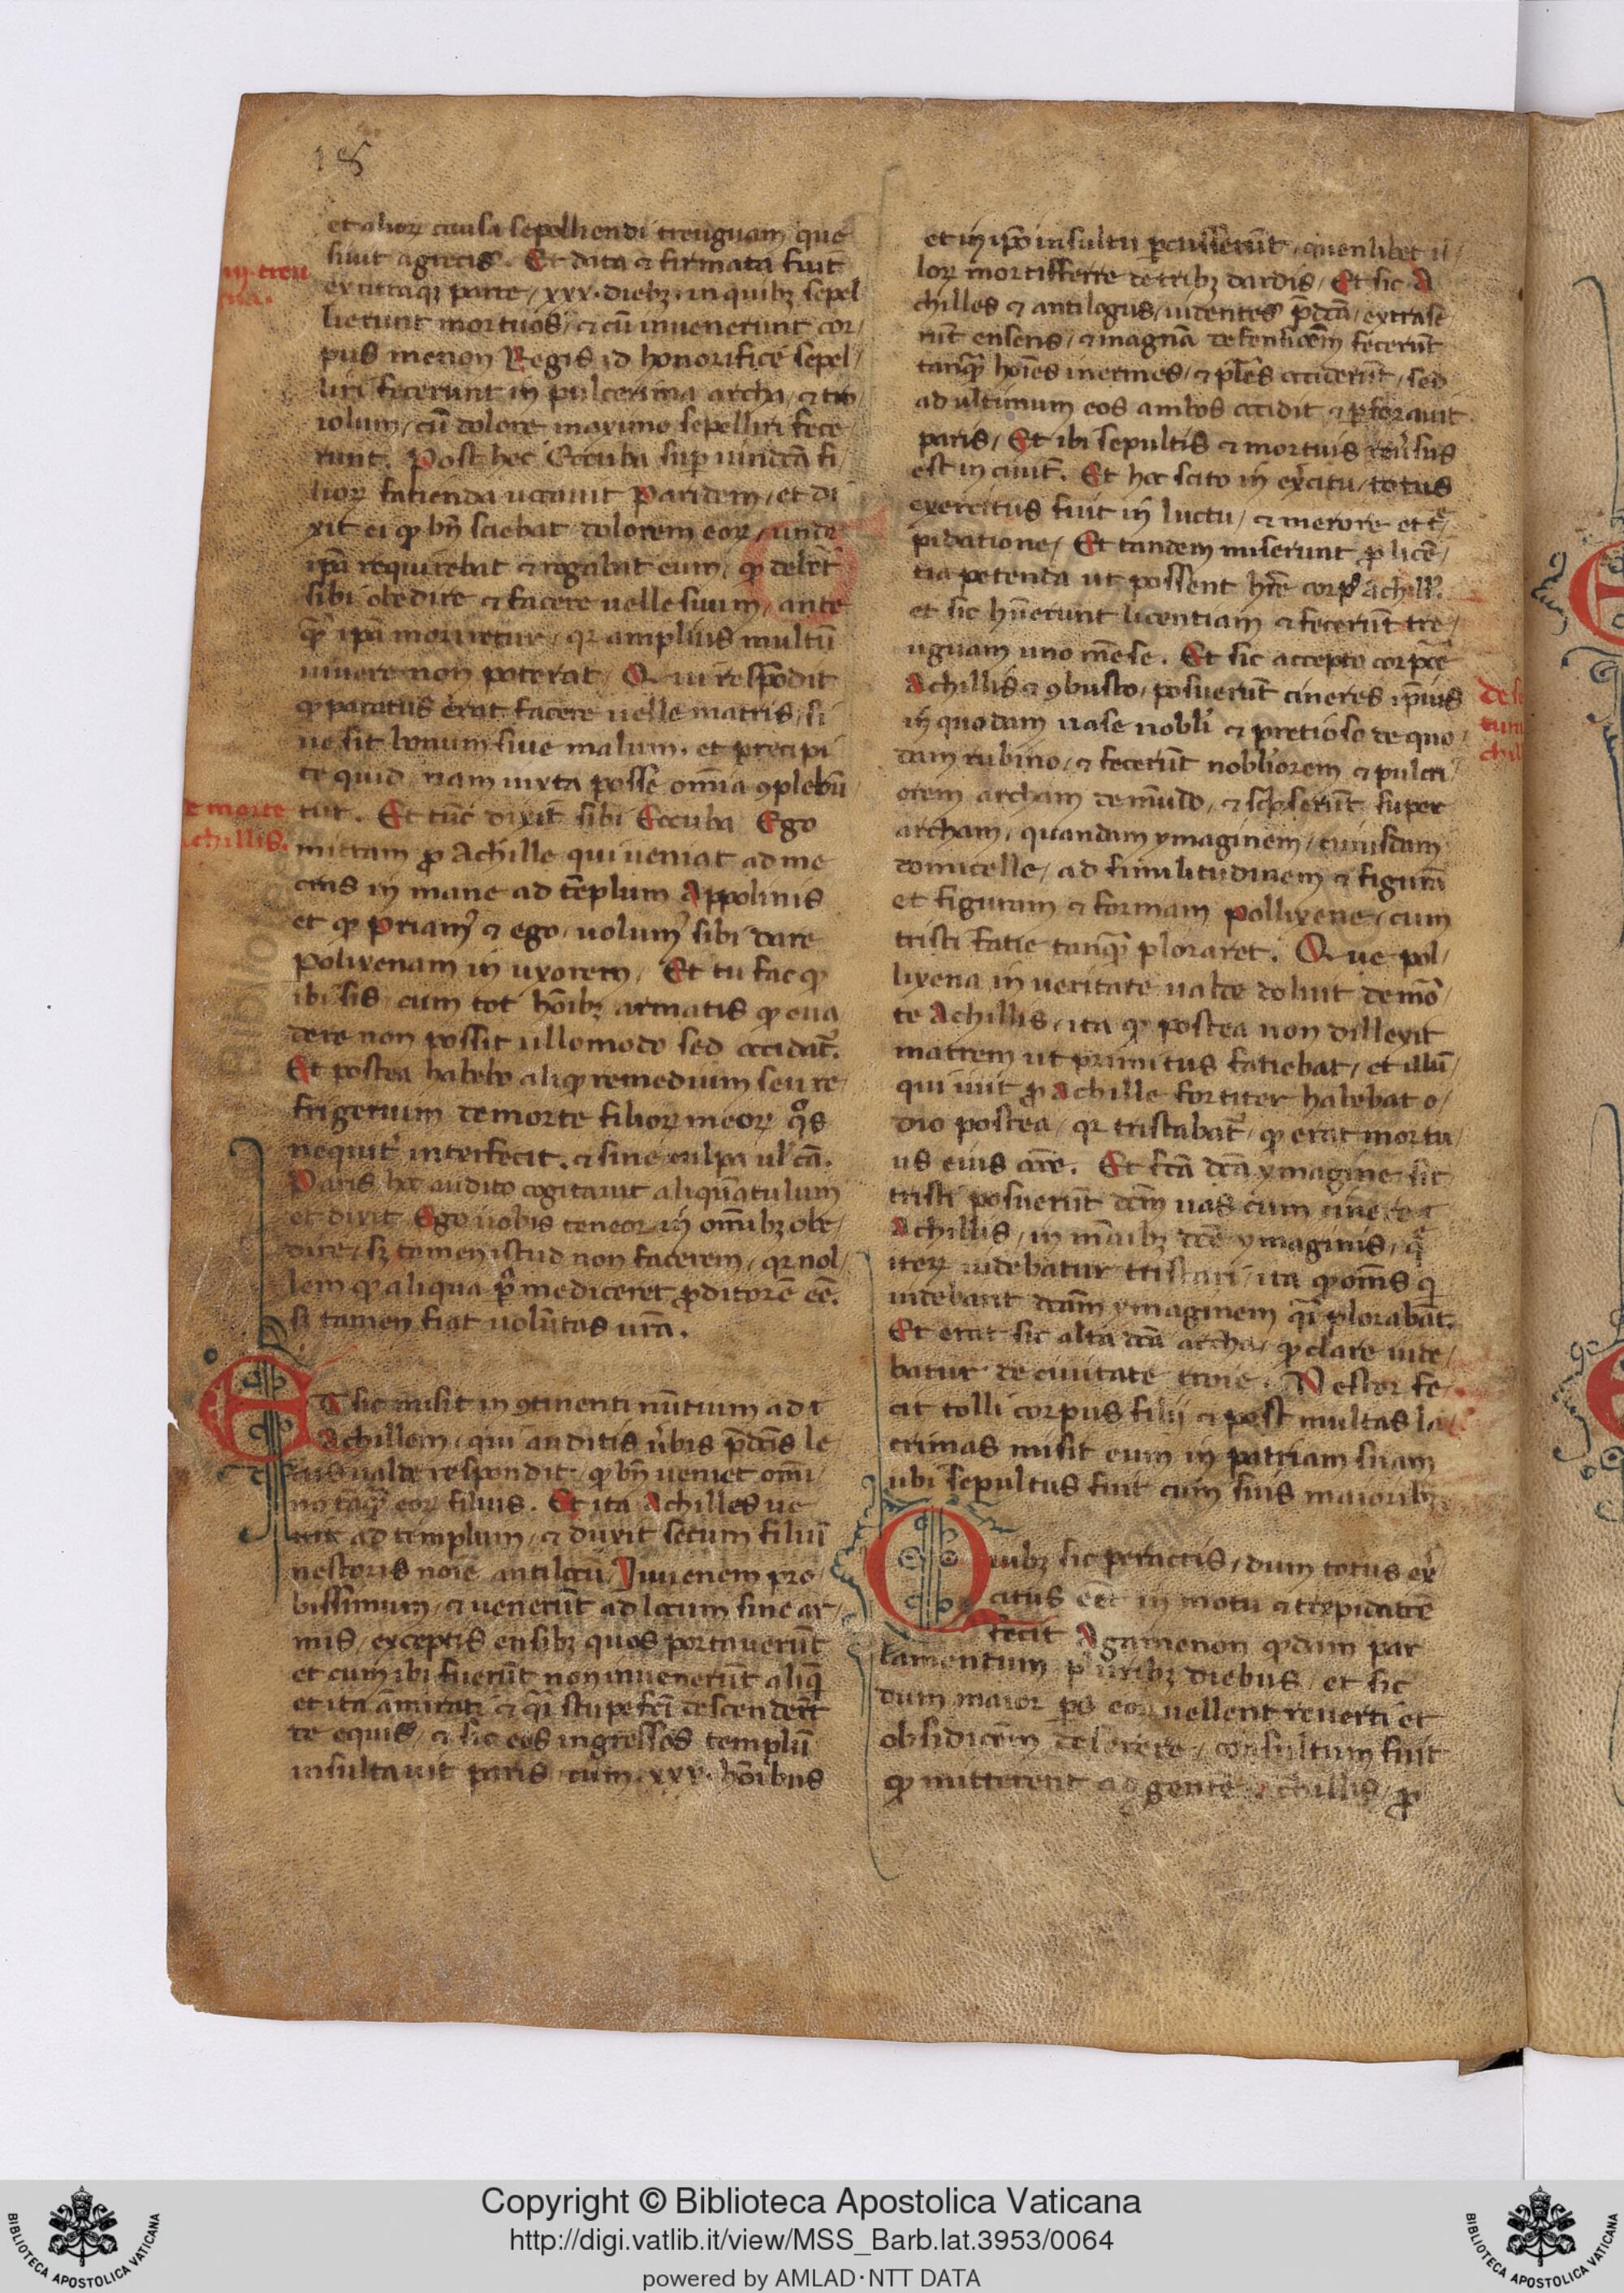 18
et alioꝝ causa sepelliendi treuguam que
siuit a grecis. Et data ⁊ firmata fuit
ex utraqꝫ parte / xxx. diebꝫ. in quibꝫ sepel
lierunt mortuos / ⁊ cū inuenerunt cor/
pus menon Regis id honorifice sepel/
liri fecerunt in pulcerima archa / ⁊ tro
iolum / cū dolore maximo sepelliri fece
runt. Post hec Eccuba suꝑ uindcā fi/
lioꝝ fatienda uocauit Paridem / et di
xit ei ꝙ bn̄ sciebat dolorem eoꝝ / unde
ip̄a requirebat ⁊ rogabat eum / ꝙ deberꝫ
sibi obedire ⁊ facere uelle suum / ante
qm̄ ip̄a moriretur / qr amplius multū
uiuere non poterat / Qui respōdit
ꝙ paratus erat facere uelle matris / si
ue sit bonum siue malum. et precipi
te quid nam iuxta posse om̄ia ꝯplebū
tur. Et tūc dixit sibi Eccuba Ego
mittam ꝓ Achille qui ueniat ad me
cras in mane ad tēplum Appolinis
et ꝙ Priamꝰ ⁊ ego / uolumꝰ sibi dare
Polixenam in uxorem / Et tu fac ꝙ
ibi sis cum tot hōibꝫ armatis ꝙ eua
dere non possit ullo modo sed occidat͛.
Et postea habebo aliqđ remedium seu re/
frigerium de morte filioꝝ meoꝝ qͦs
nequit͛ interfecit. ⁊ sine culpa ul͛ cā.
Paris hoc audito cogitauit aliquātulum
et dixit Ego uobis teneor in om̄ibꝫ obe/
dire / sꝫ tamen istud non facerem / qr nol/
lem ꝙ aliqua ꝑte me diceret ꝓditorē eē.
s̄ tamen fiat uolūtas ur̄a.
ET sic misit in ꝯtinenti nūtium ad
Achillem / qui auditis ūbis p̄dcīs le
tus ualde respondit / ꝙ bn̄ ueniet om̄i
no tāqꝫ eoꝝ filius. Et ita Achilles ue
nit ad templum / ⁊ duxit secum filiū
nestoris noīe antilocū / Iuuenem pro/
bissimum / ⁊ uenerūt ad locum sine ar/
mis / exceptis ensibꝫ quos portauerūt
et cum ibi fuerūt non inuenerūt aliqꝫ
et ita āmirati ⁊ qͣi stupefcī descenderūt
de equis / ⁊ sic eos ingressos templū
insultauit paris cum. xxx. hōibus
in treu
gua.
De morte
Achillis.
et in ip̄o insultu ꝑcusserūt / quenlibet il/
loꝝ mortifferre de tribꝫ dardis / Et sic A
chilles ⁊ antilogus / uidentes p̄dcā / extraxe
rūt enses / ⁊ magnā defensioēm fecerūt
tanqꝫ hoīes inermes / ⁊ pl͛es occiderūt / sed
ad ultimum eos ambos occidit ⁊ ꝑforauit
paris / Et ibi sepultis ⁊ mortuis reūsus
est in ciuit͛. Et hoc scito in exꝰcitu / totus
exercitus fuit in luctu / ⁊ merore et t͛
pidatione / Et tandem miserunt ꝓ licē/
tia petenda ut possent hr̄e corpꝰ achill͛
et sic hūerunt licentiam ⁊ fecerūt tre/
uguam uno mēse. Et sic accepto corpoꝫ
Achillis ⁊ ꝯbusto / posuerūt cineres ip̄ius
in quodam uase nobli ⁊ pretioso de quo/
dam rubino / ⁊ fecerūt nobliorem ⁊ pulcri/
orem archam de mūdo / ⁊ sclpserūt super
archam / quandam ymaginem / cuiusdam
domicelle / ad similitudinem ⁊ figurā
et figuram ⁊ formam Pollixene / cum
tristi fatie tanqꝫ ploraret. Que pol/
lixena in ueritate ualde doluit de mor/
te Achillis / ita ꝙ postea non dillexit
matrem ut primitus fatiebat / et illū/
qui iuit ꝓ Achille fortiter habebat o/
dio postea / qr tristabat͛ / ꝙ erat mortu/
us eius core. Et fcā dcā ymagine sic
tristi posuerūt dcm̄ uas cum cinere
Achillis / in manibꝫ dcē ymaginis / q̄
iteꝝ uidebatur tristari / ita ꝙ om̄s q̄
uidebant dcam̄ ymaginem qͣi plorabāt.
Et erat sic alta dcā archa / ꝙ clare uide/
batur de ciuitate troie. Nestor fe/
cit tolli corpus filii ⁊ post multas la/
crimas misit eum in patriam suam
ubi sepultus fuit cum suis maioribꝫ
Quibꝫ sic peractis / dum totus ex͛
citus eēt in motu ⁊ trepidatōe
fecit Agamenon qđdam par
lamentum pluribꝫ diebus / et sic
dum maior ps eoꝝ uellent reuerti et
obsidioēm deserere / consultum fuit
ꝙ mitterent ad gente Achillis / ꝓ
Copyright © Biblioteca Apostolica Vaticana
http://digi.vatlib.it/view/MSS_Barb.lat.3953/0064
powered by AMLAD·NTT DATA
BIBLIOTECA APOSTOLICA VATICANA
BIBLIOTECA APOSTOLICA VATICANA